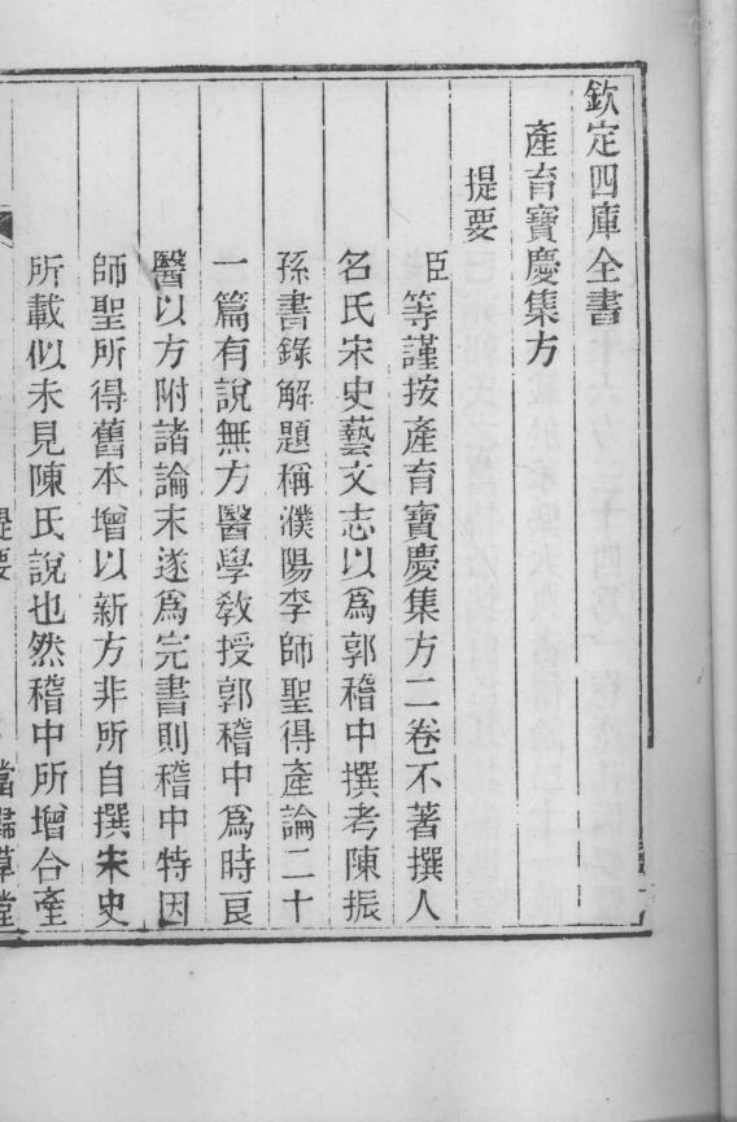 欽定四庫全書
產育寶慶集方
提要
臣等謹按產育寶慶集方二卷不著撰人
名氏宋史藝文志以爲郭稽中撰考陳振
孫書錄解題稱濮陽李師聖得產論二十
一篇有說無方醫學教授郭稽中爲時良
醫以方附諸論末遂爲完書則稽中特因
師聖所得舊本增以新方非所自撰宋史
所載似未見陳氏說也然稽中所增合產
提要
當歸草堂